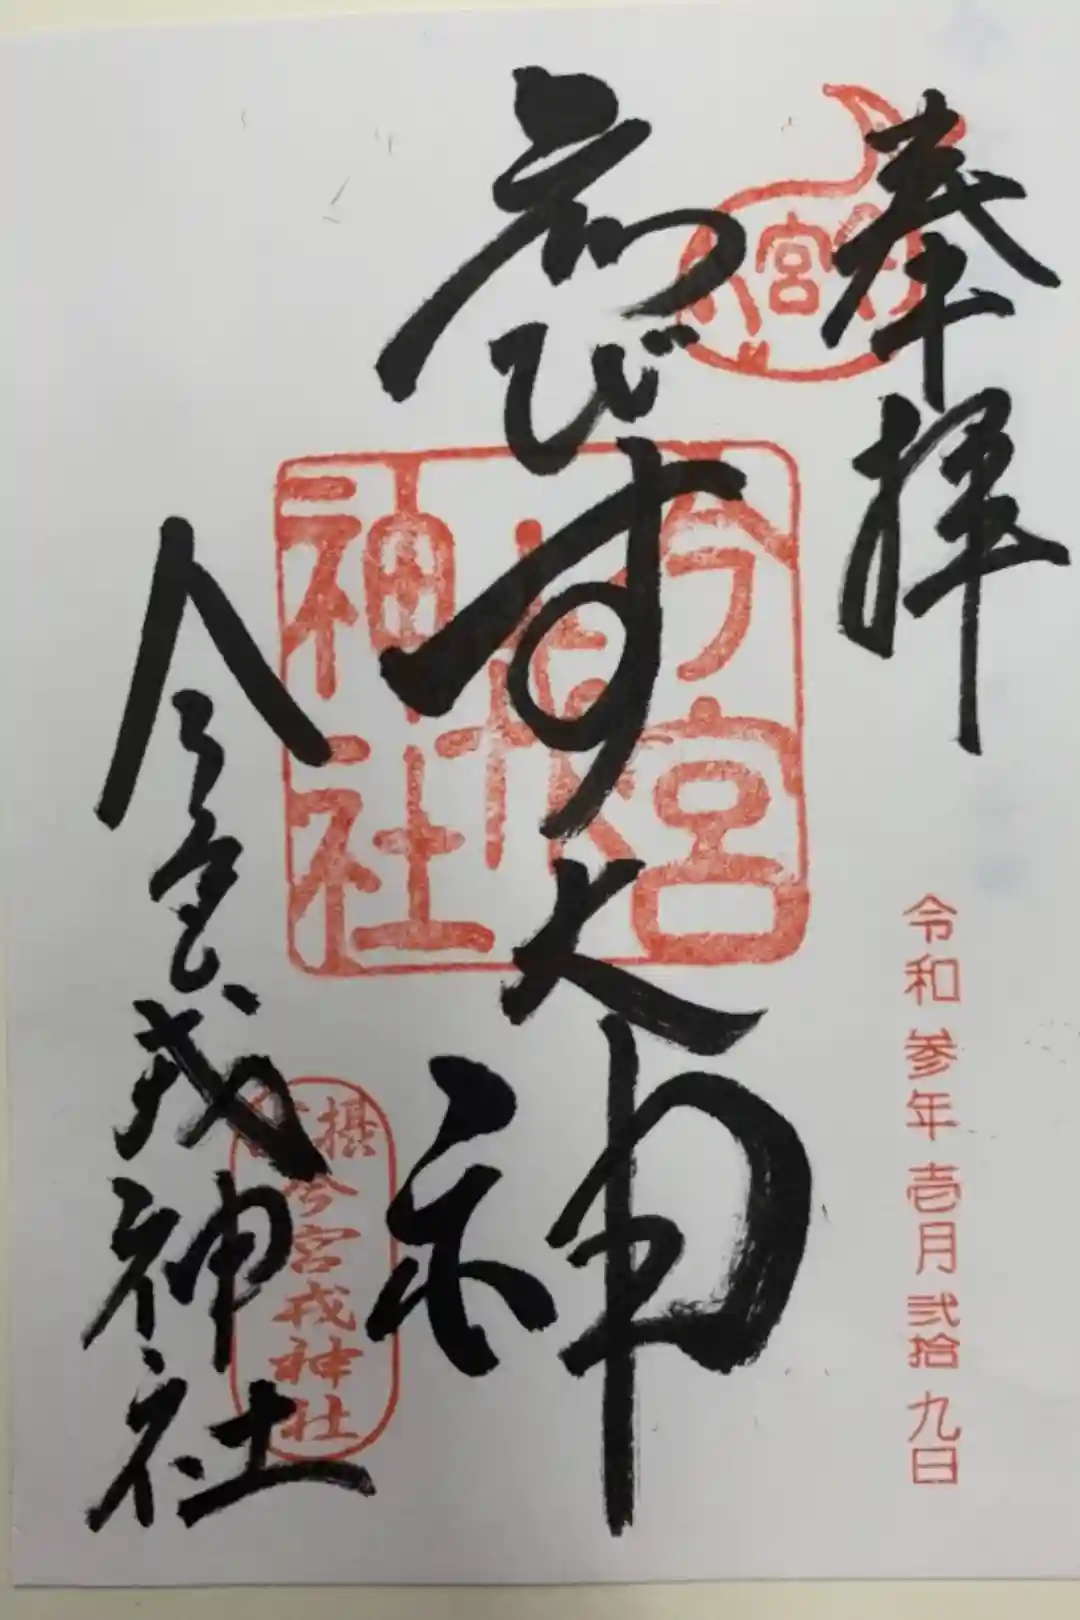 奉拝
令和参年壱月弐拾九日
ゑびす大神
今宮戎神社
今宮戎神社
宮
摂
今宮戎神社